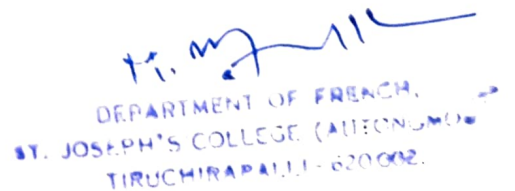 DEPARTMENT OF FRENCH,
ST. JOSEPH'S COLLEGE (AUTONOMOUS
TIRUCHIRAPALLI - 620 002.